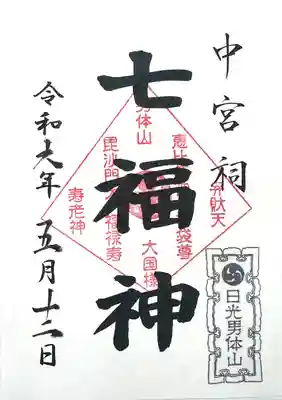 中宮祠
七福神
令和六年五月十二日
男体山
恵比
弁財天
毘沙門
袋尊
福禄寿
大国様
寿老神
日光男体山